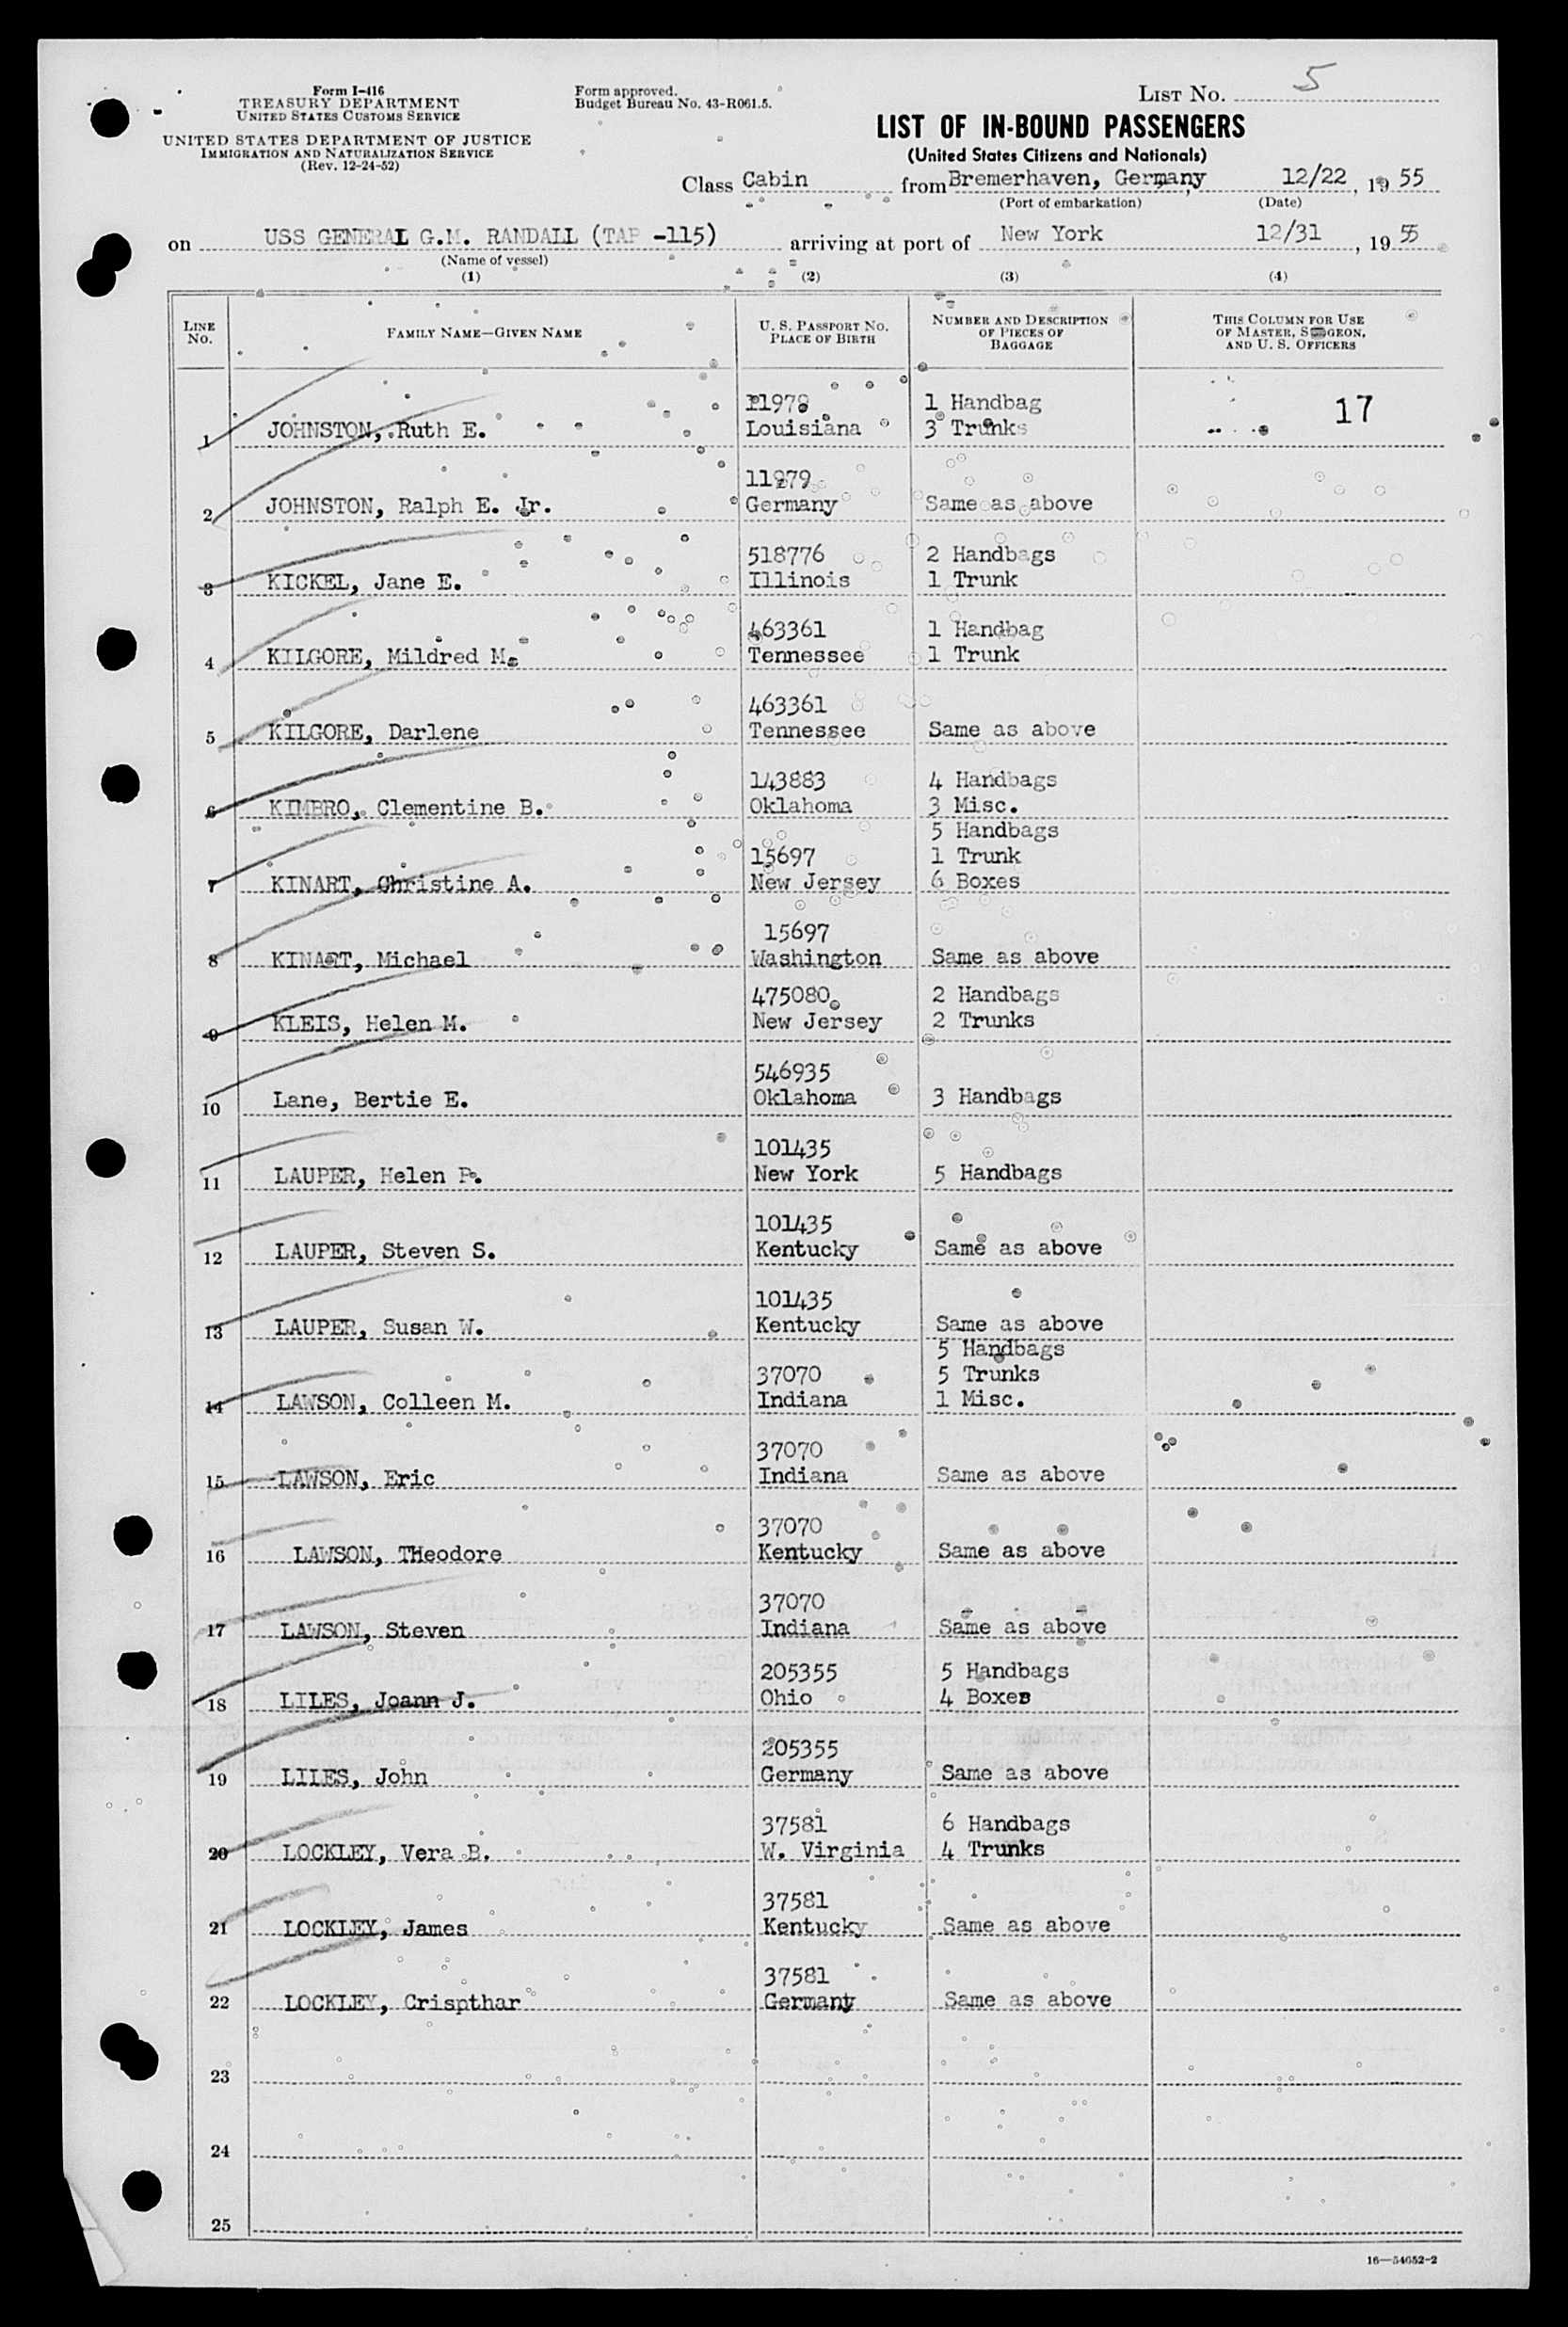 Form I-416
TREASURY DEPARTMENT
UNITED STATES CUSTOMS SERVICE
UNITED STATES DEPARTMENT OF JUSTICE
IMMIGRATION AND NATURALIZATION SERVICE
(Rev. 12-24-52)
Form approved.
Budget Bureau No. 43-R061.5.
LIST No. 5
LIST OF IN-BOUND PASSENGERS
(United States Citizens and Nationals)
Class Cabin from Bremerhaven, Germany, 12/22, 1955
(Port of embarkation) (Date)
on USS GENERAL G.M. RANDALL (TAP -115) arriving at port of New York 12/31, 1955
(Name of vessel)
(1) (2) (3) (4)
LINE No. FAMILY NAME—GIVEN NAME U. S. PASSPORT No. PLACE OF BIRTH NUMBER AND DESCRIPTION OF PIECES OF BAGGAGE THIS COLUMN FOR USE OF MASTER, SURGEON, AND U. S. OFFICERS
11979 1 Handbag 17
1 JOHNSTON, Ruth E. Louisiana 3 Trunks
11979
2 JOHNSTON, Ralph E. Jr. Germany Same as above
518776 2 Handbags
3 KICKEL, Jane E. Illinois 1 Trunk
463361 1 Handbag
4 KILGORE, Mildred M. Tennessee 1 Trunk
463361
5 KILGORE, Darlene Tennessee Same as above
143883 4 Handbags
6 KIMBRO, Clementine B. Oklahoma 3 Misc.
5 Handbags
15697 1 Trunk
7 KINART, Christine A. New Jersey 6 Boxes
15697
8 KINART, Michael Washington Same as above
475080 2 Handbags
9 KLEIS, Helen M. New Jersey 2 Trunks
546935
10 Lane, Bertie E. Oklahoma 3 Handbags
101435
11 LAUPER, Helen P. New York 5 Handbags
101435
12 LAUPER, Steven S. Kentucky Same as above
101435
13 LAUPER, Susan W. Kentucky Same as above
5 Handbags
37070 5 Trunks
14 LAWSON, Colleen M. Indiana 1 Misc.
37070
15 LAWSON, Eric Indiana Same as above
37070
16 LAWSON, THeodore Kentucky Same as above
37070
17 LAWSON, Steven Indiana Same as above
205355 5 Handbags
18 LILES, Joann J. Ohio 4 Boxes
205355
19 LILES, John Germany Same as above
37581 6 Handbags
20 LOCKLEY, Vera B. W. Virginia 4 Trunks
37581
21 LOCKLEY, James Kentucky Same as above
37581
22 LOCKLEY, Crispthar Germany Same as above
23
24
25
16—54652-2